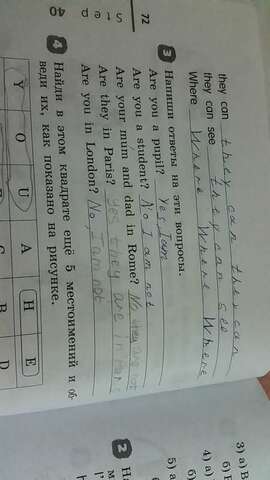 they can they can they can
they can see they can see
Where Where Where Where
3 Напиши ответы на эти вопросы.
Are you a pupil? Yes, I am
Are you a student? No I am not
Are your mum and dad in Rome? No they are not
Are they in Paris? Yes they are in Paris
Are you in London? No, I am not
4 Найди в этом квадрате ещё 5 местоимений и об-
веди их, как показано на рисунке.
Y O U A H E
B D
72
2
3) а)
б)
4) а)
б)
5) а